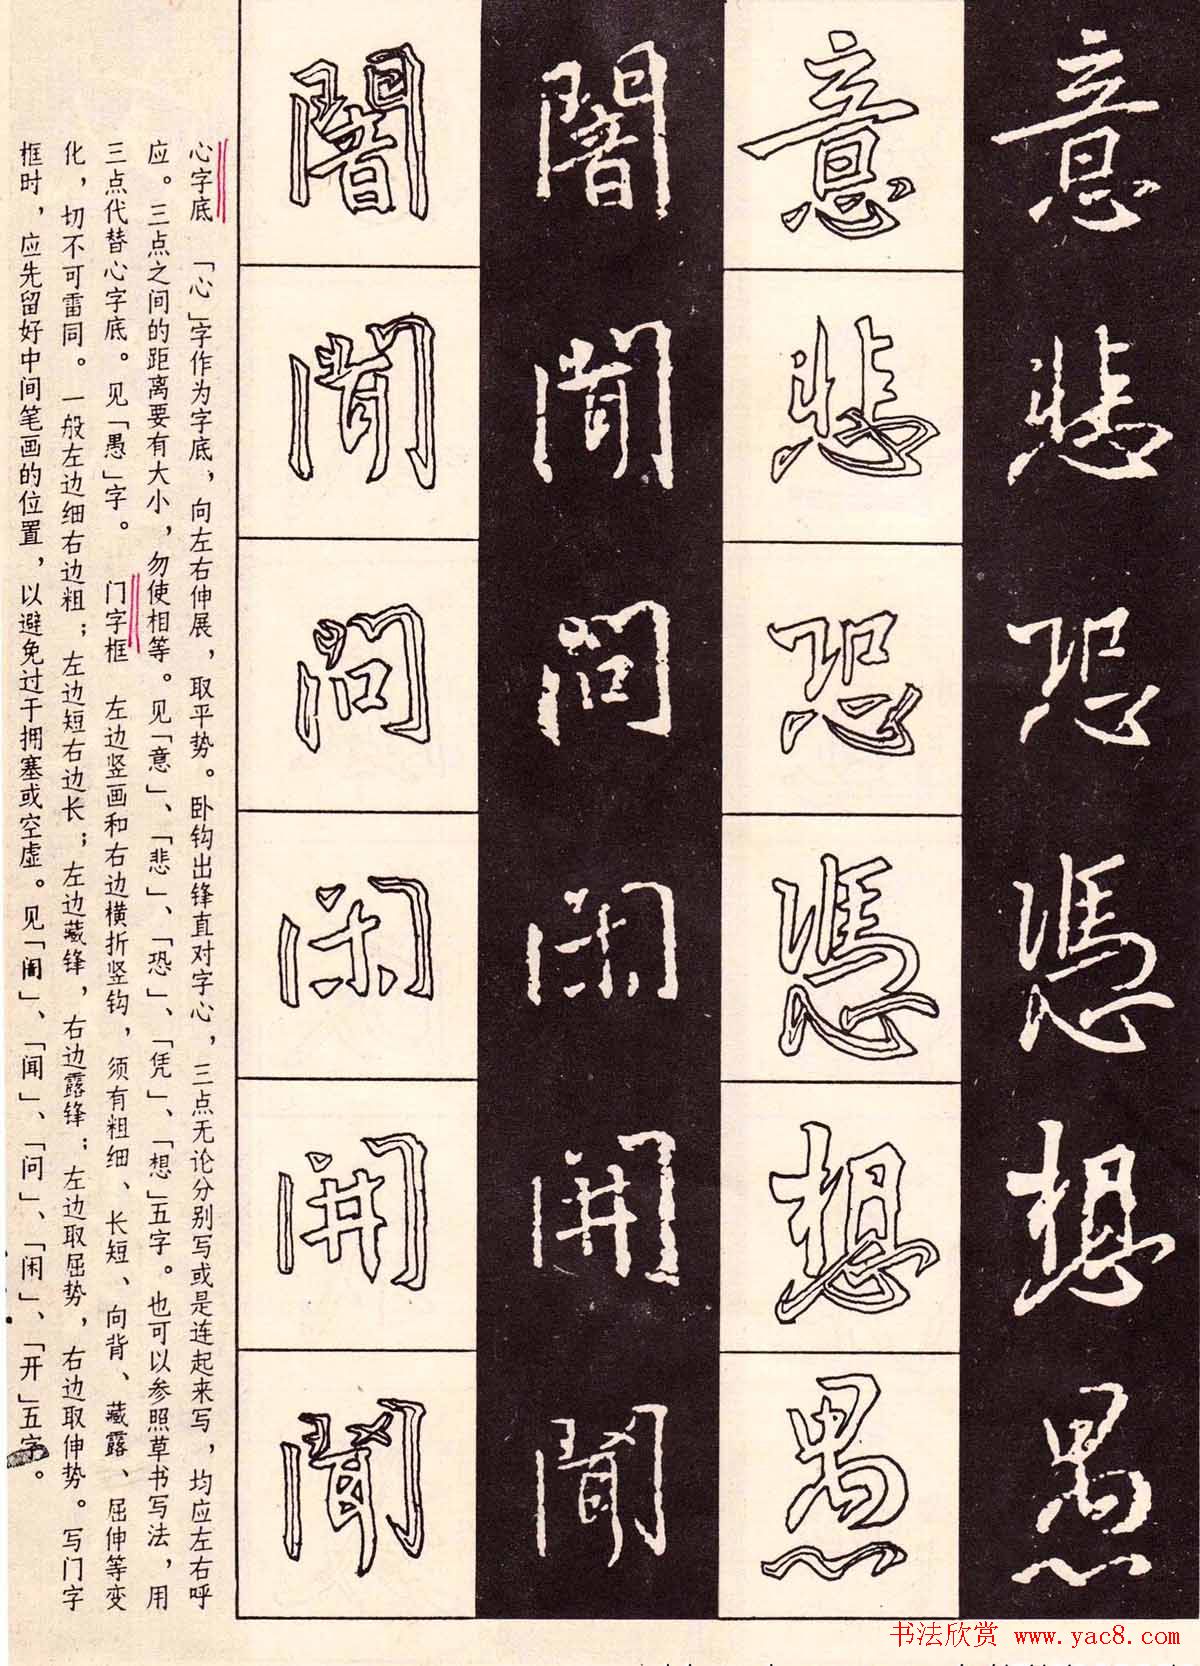 意悲恐憑想愚
意悲恐憑想愚
闇問閑開聞
闇問閑開聞
心字底　「心」字作为字底，向左右伸展，取平势。卧钩出锋直对字心，三点无论分别写或是连起来写，均应左右呼
应。三点之间的距离要有大小，勿使相等。见「意」、「悲」、「恐」、「凭」、「想」五字。也可以参照草书写法，用
三点代替心字底。见「愚」字。　门字框　左边竖画和右边横折竖钩，须有粗细、长短、向背、藏露、屈伸等变
化，切不可雷同。一般左边细右边粗；左边短右边长；左边藏锋，右边露锋；左边取屈势，右边取伸势。写门字
框时，应先留好中间笔画的位置，以避免过于拥塞或空虚。见「」、「闻」、「问」、「闲」、「开」五字。
书法欣赏 www.yac8.com